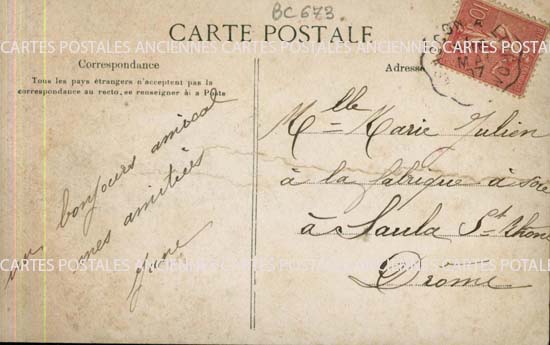 BC673.
CARTE POSTALE
CARTES POSTALES ANCIENNES CARTES POSTALES ANCIENNES CARTES POSTALES ANCIENNES
Correspondance
Adresse
Tous les pays étrangers n'acceptent pas la
correspondance au recto, se renseigner à la Poste
bonjours amical
mes amitiés
Jane
Mlle Marie Julien
à la fabrique à soie
à Saula St Rhone
Drôme
CARTES POSTALES ANCIENNES CARTES POSTALES ANCIENNES CARTES POTALES ANCIENNES
10